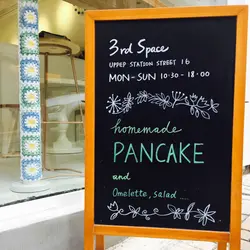 3rd Space
UPPER STATION STREET 16
MON-SUN 10:30-18:00
homemade
PANCAKE
and
Omelette, salad